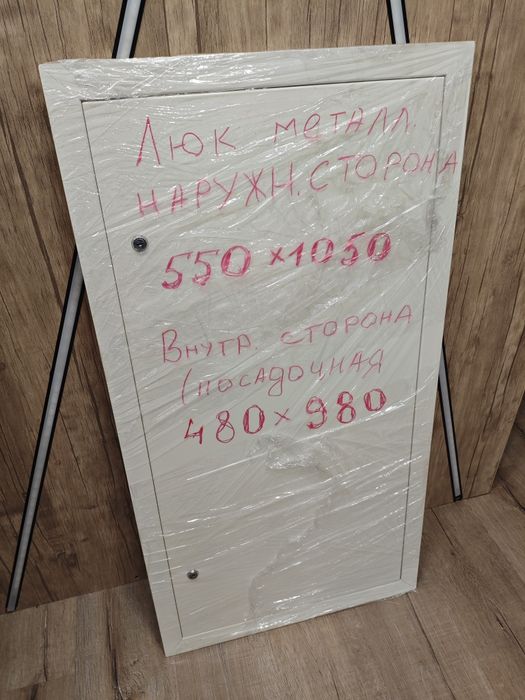 Люк металл.
наружн. сторона
550×1050
Внутр. сторона
(посадочная
480×980